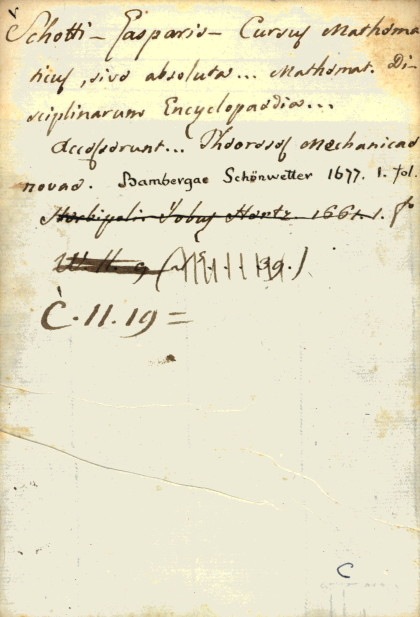 Schotti - Gasparis - Cursus Mathema
ticus, sive absoluta... Mathemat. Di-
sciplinarum Encyclopaedia...
Accesserunt... Theoreses Mechanicae
novae. Bambergae Schönwetter 1677. 1. fol.
Herbipolis Jobus Hertz 1661. 1. fo
C. 11. 19 =
C